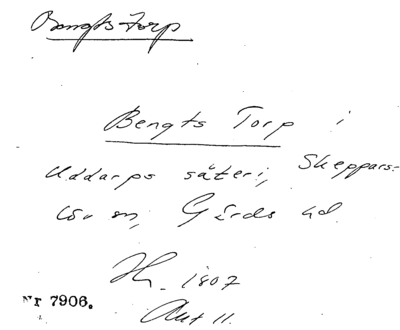 Bengts Torp
Bengts Torp i
Uddarps säteri, Skeppars-
löv sn, Gärds hd.
1807
Akt 11.
Nr 7906.